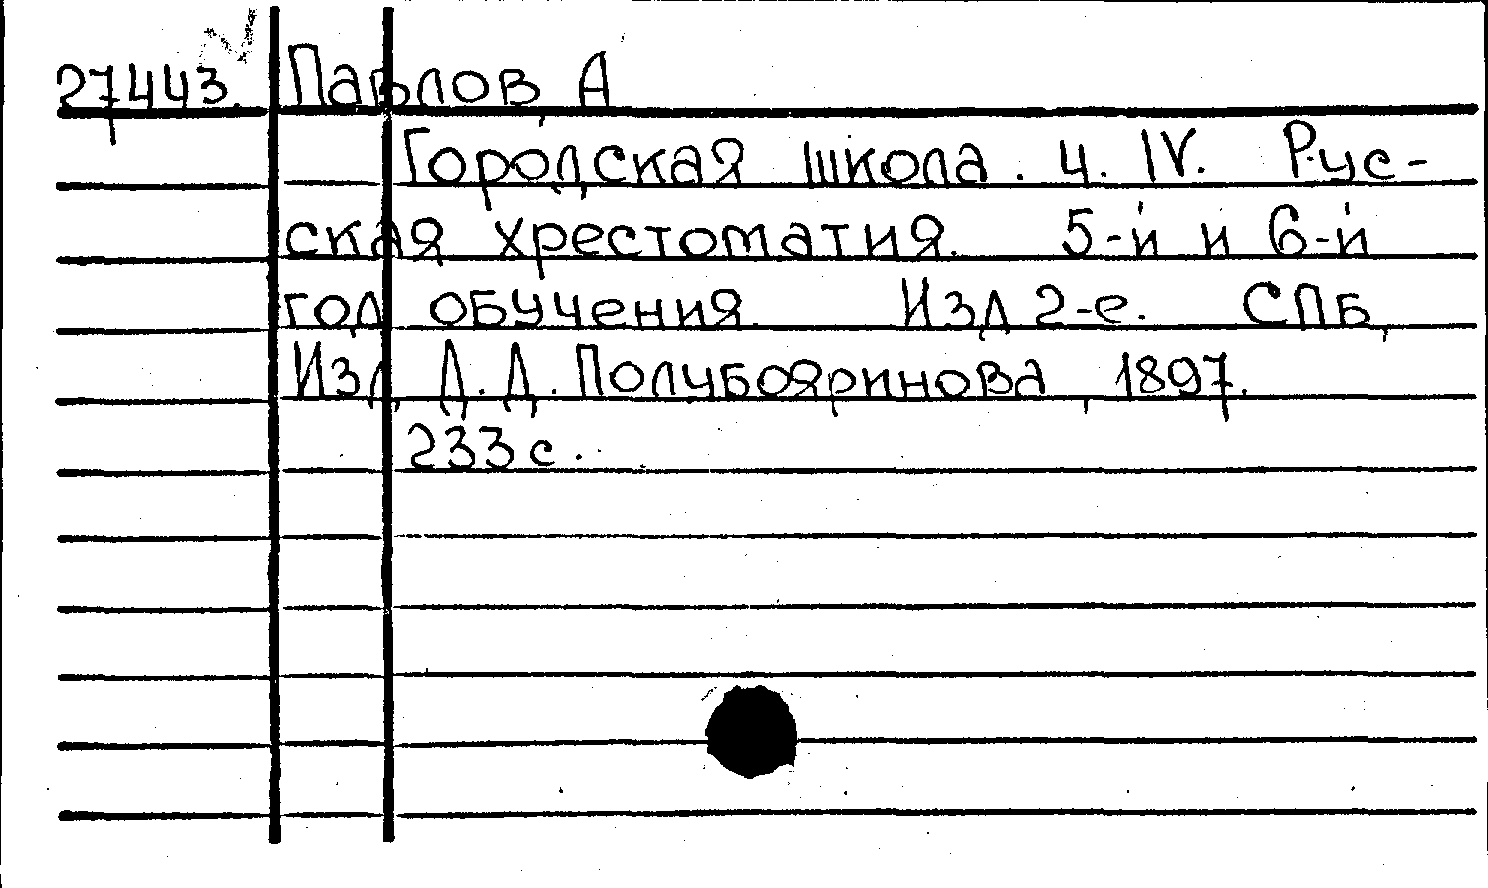 27443. Павлов, А
Городская школа. Ч. IV. Рус-
ская хрестоматия. 5-й и 6-й
год обучения. Изд 2-е. СПБ,
Изд. Д. Д. Полубояринова, 1897.
233 с.